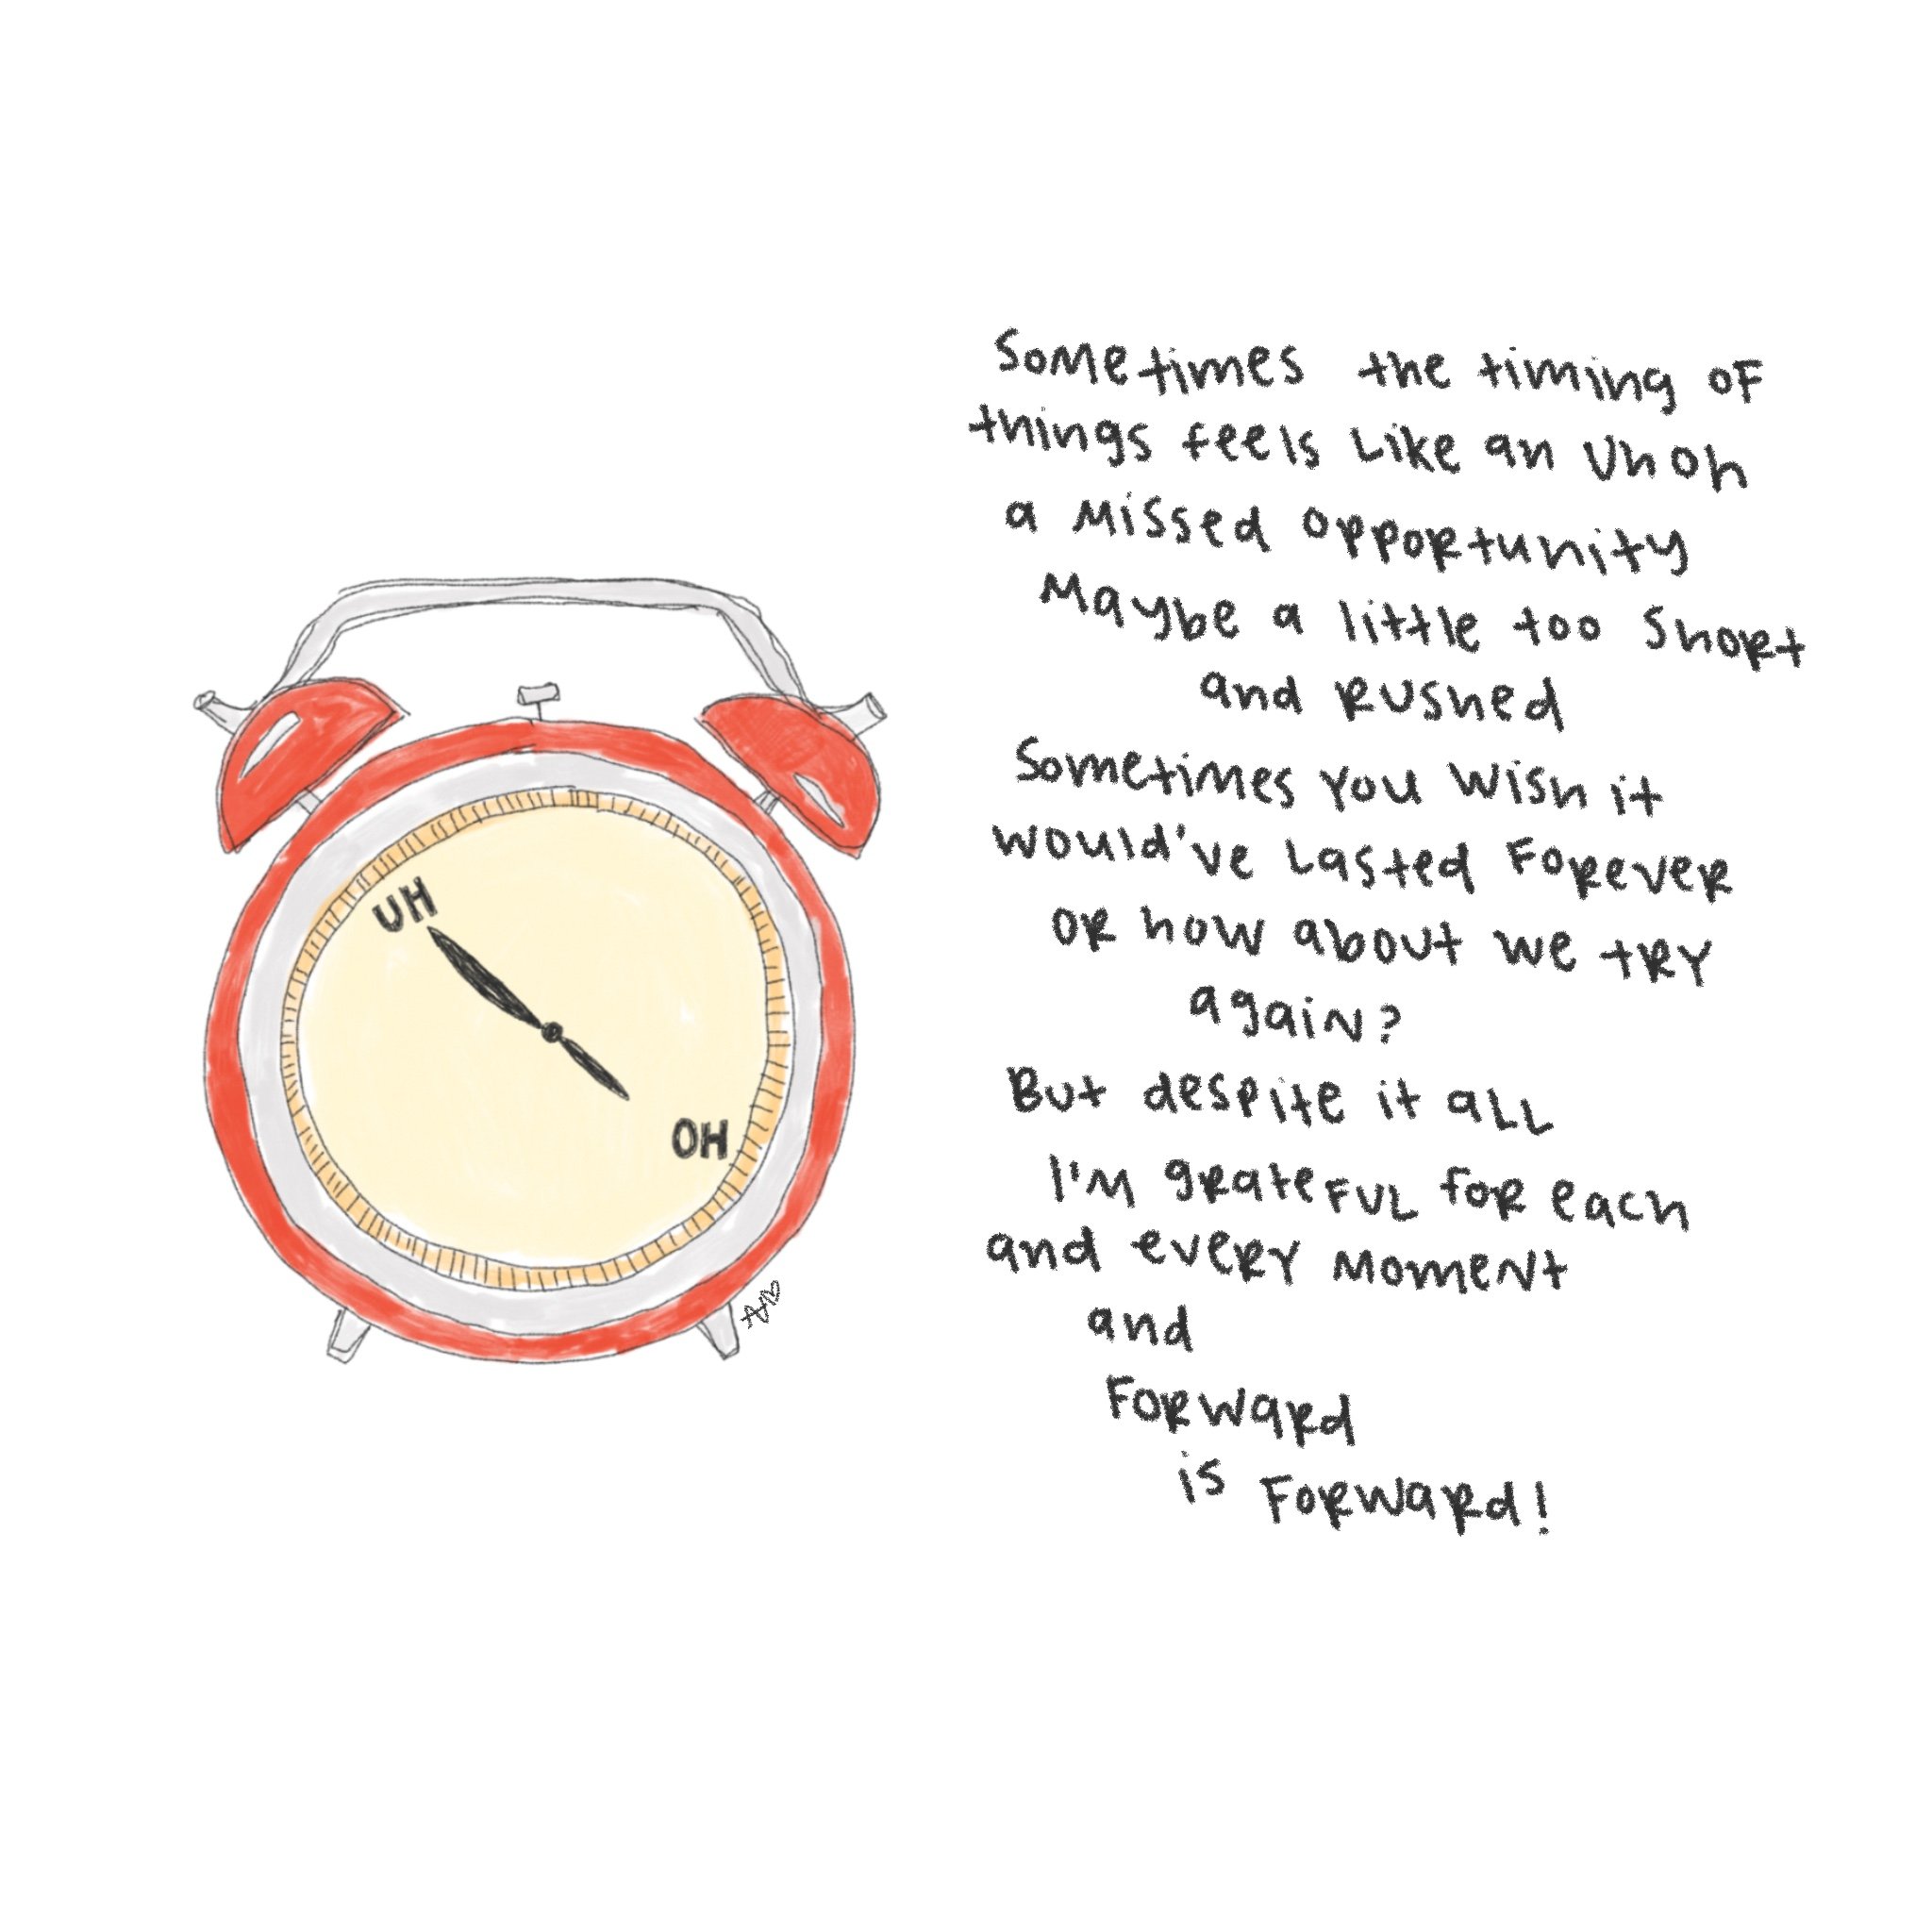 UH
OH
Sometimes the timing of
things feels like an Uh oh
a missed opportunity
Maybe a little too short
and rushed
Sometimes you wish it
would've lasted forever
or how about we try
again?
But despite it all
I'm grateful for each
and every moment
and
Forward
is Forward!